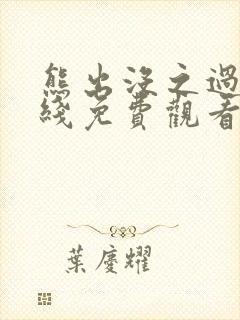 熊出沒之過
綫免費觀看
葉慶耀